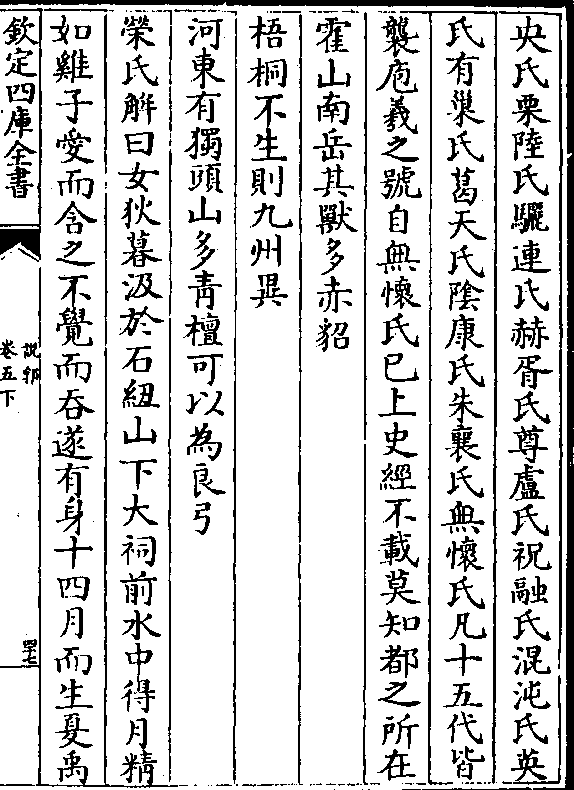 央氏栗陸氏驪連氏赫胥氏尊盧氏祝融氏混沌氏英
氏有巢氏葛天氏陰康氏朱襄氏無懷氏凡十五代皆
襲庖羲之號自無懷氏已上史經不載莫知都之所在
霍山南岳其獸多赤貂
梧桐不生則九州異
河東有獨頭山多青檀可以為良弓
榮氏解曰女狄暮汲於石紐山下大祠前水中得月精
如雞子愛而含之不覺而吞遂有身十四月而生夏禹
欽定四庫全書
說郛
卷五下
四十七